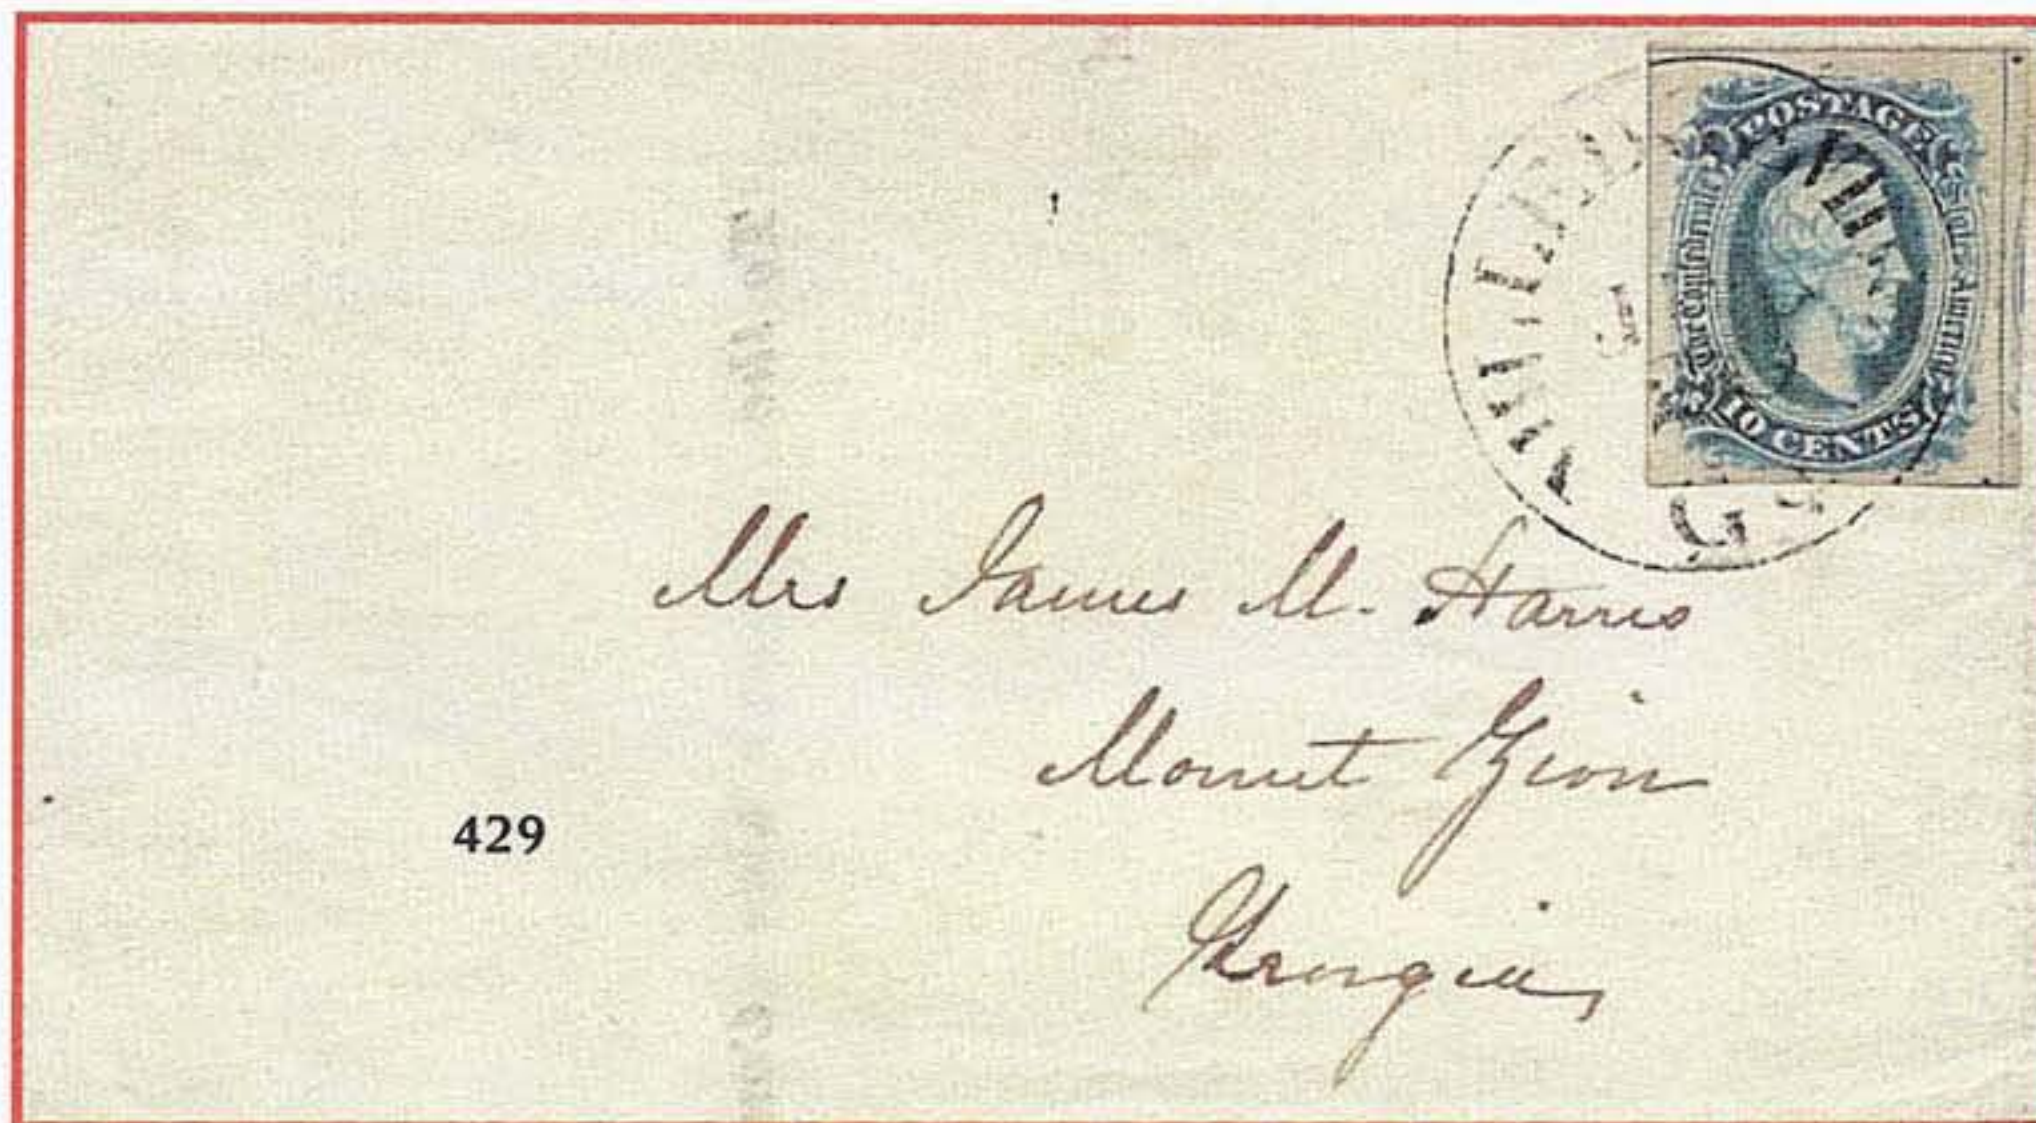 POSTAGE
The Confederate States of America
10 CENTS
Mrs James M. Harris
Mount Zion
429
Georgia